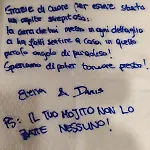 Grazie di cuore per essere stata
un ospite strepitosa:
la cura che hai messo in ogni dettaglio
ci ha fatti sentire a casa, in questo
angolo di paradiso!
Speriamo di poter tornare presto!
Elena & Denis
PS: IL TUO MOJITO NON LO
BATTE NESSUNO!